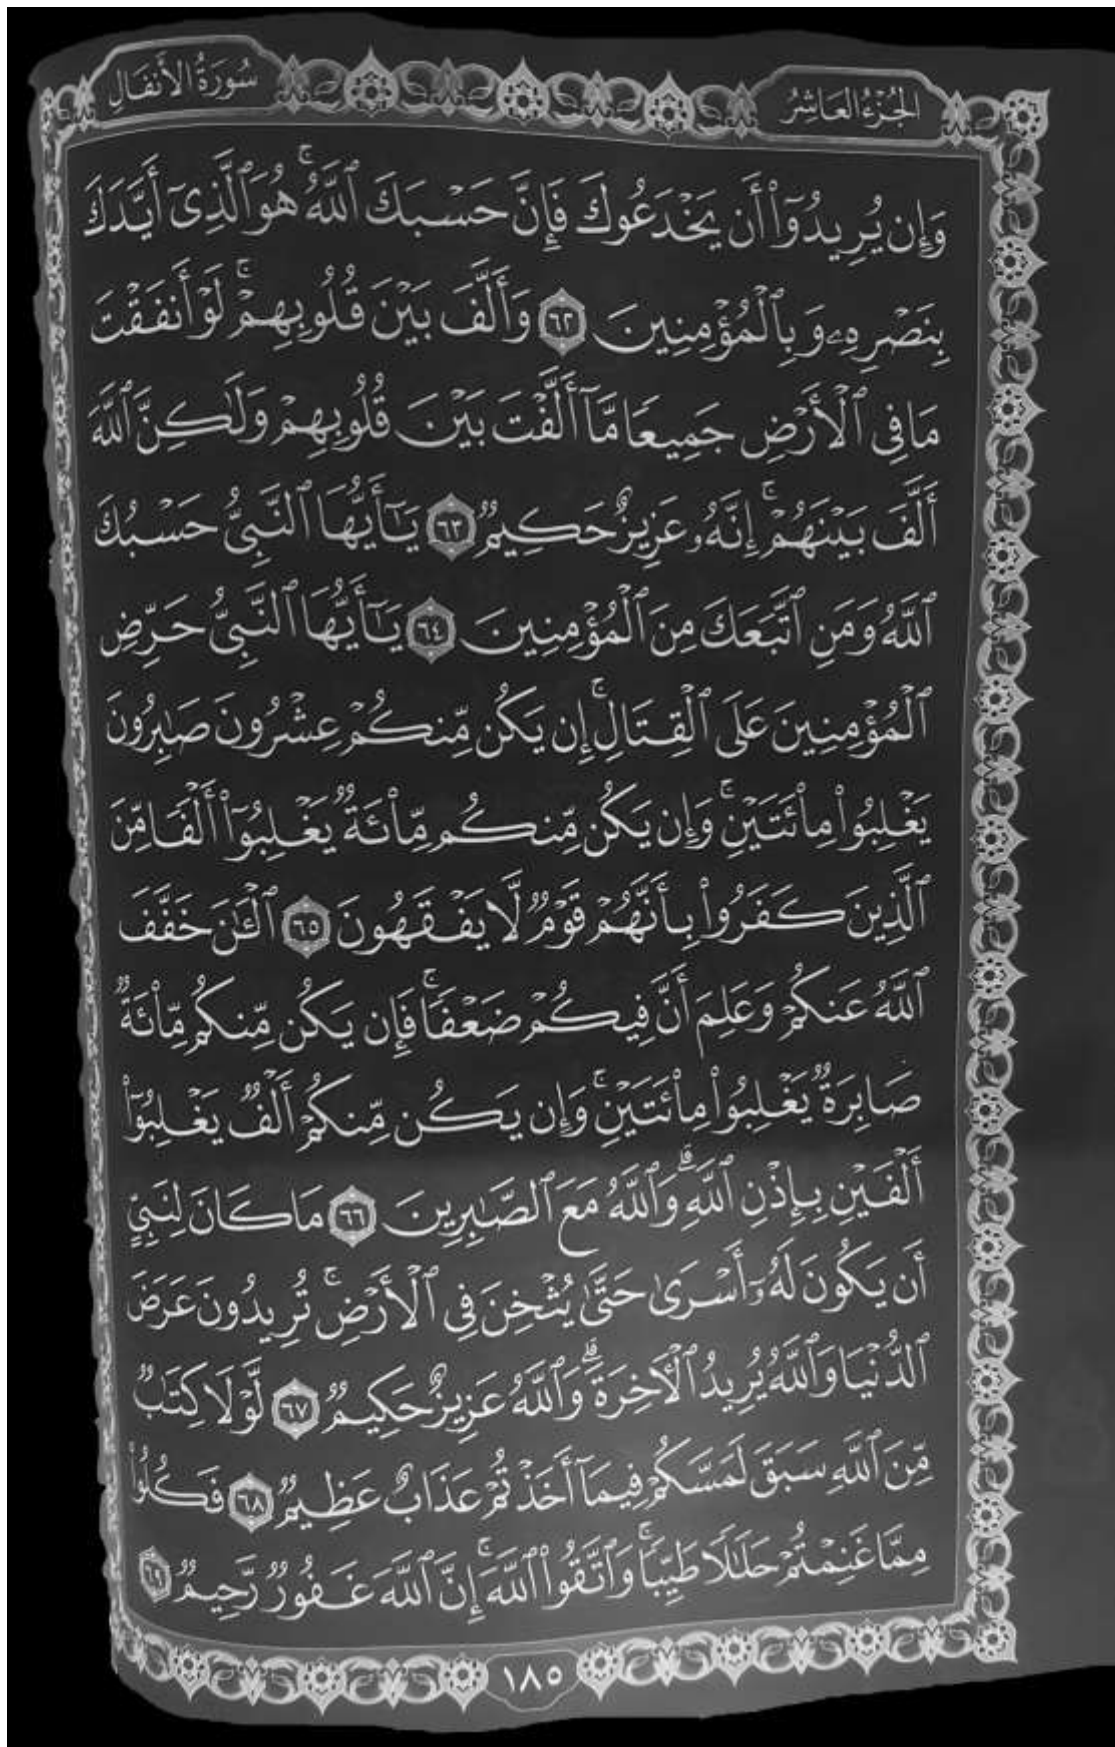 الجُزْءُ العَاشِرُ
سُورَةُ الأَنفَالِ
وَإِن يُرِيدُوٓاْ أَن يَخْدَعُوكَ فَإِنَّ حَسْبَكَ ٱللَّهُۚ هُوَ ٱلَّذِىٓ أَيَّدَكَ
بِنَصْرِهِۦ وَبِٱلْمُؤْمِنِينَ ٦٢ وَأَلَّفَ بَيْنَ قُلُوبِهِمْۚ لَوْ أَنفَقْتَ
مَا فِى ٱلْأَرْضِ جَمِيعًا مَّآ أَلَّفْتَ بَيْنَ قُلُوبِهِمْ وَلَٰكِنَّ ٱللَّهَ
أَلَّفَ بَيْنَهُمْۚ إِنَّهُۥ عَزِيزٌ حَكِيمٌ ٦٣ يَٰٓأَيُّهَا ٱلنَّبِىُّ حَسْبُكَ
ٱللَّهُ وَمَنِ ٱتَّبَعَكَ مِنَ ٱلْمُؤْمِنِينَ ٦٤ يَٰٓأَيُّهَا ٱلنَّبِىُّ حَرِّضِ
ٱلْمُؤْمِنِينَ عَلَى ٱلْقِتَالِۚ إِن يَكُن مِّنكُمْ عِشْرُونَ صَٰبِرُونَ
يَغْلِبُواْ مِاْئَتَيْنِۚ وَإِن يَكُن مِّنكُم مِّاْئَةٌ يَغْلِبُوٓاْ أَلْفًا مِّنَ
ٱلَّذِينَ كَفَرُواْ بِأَنَّهُمْ قَوْمٌ لَّا يَفْقَهُونَ ٦٥ ٱلْـَٰٔنَ خَفَّفَ
ٱللَّهُ عَنكُمْ وَعَلِمَ أَنَّ فِيكُمْ ضَعْفًاۚ فَإِن يَكُن مِّنكُم مِّاْئَةٌ
صَابِرَةٌ يَغْلِبُواْ مِاْئَتَيْنِۚ وَإِن يَكُن مِّنكُمْ أَلْفٌ يَغْلِبُوٓاْ
أَلْفَيْنِ بِإِذْنِ ٱللَّهِۗ وَٱللَّهُ مَعَ ٱلصَّٰبِرِينَ ٦٦ مَا كَانَ لِنَبِىٍّ
أَن يَكُونَ لَهُۥٓ أَسْرَىٰ حَتَّىٰ يُثْخِنَ فِى ٱلْأَرْضِۚ تُرِيدُونَ عَرَضَ
ٱلدُّنْيَا وَٱللَّهُ يُرِيدُ ٱلْأَخِرَةَۗ وَٱللَّهُ عَزِيزٌ حَكِيمٌ ٦٧ لَّوْلَا كِتَٰبٌ
مِّنَ ٱللَّهِ سَبَقَ لَمَسَّكُمْ فِيمَآ أَخَذْتُمْ عَذَابٌ عَظِيمٌ ٦٨ فَكُلُواْ
مِمَّا غَنِمْتُمْ حَلَٰلًا طَيِّبًاۚ وَٱتَّقُواْ ٱللَّهَۚ إِنَّ ٱللَّهَ غَفُورٌ رَّحِيمٌ ٦٩
١٨٥